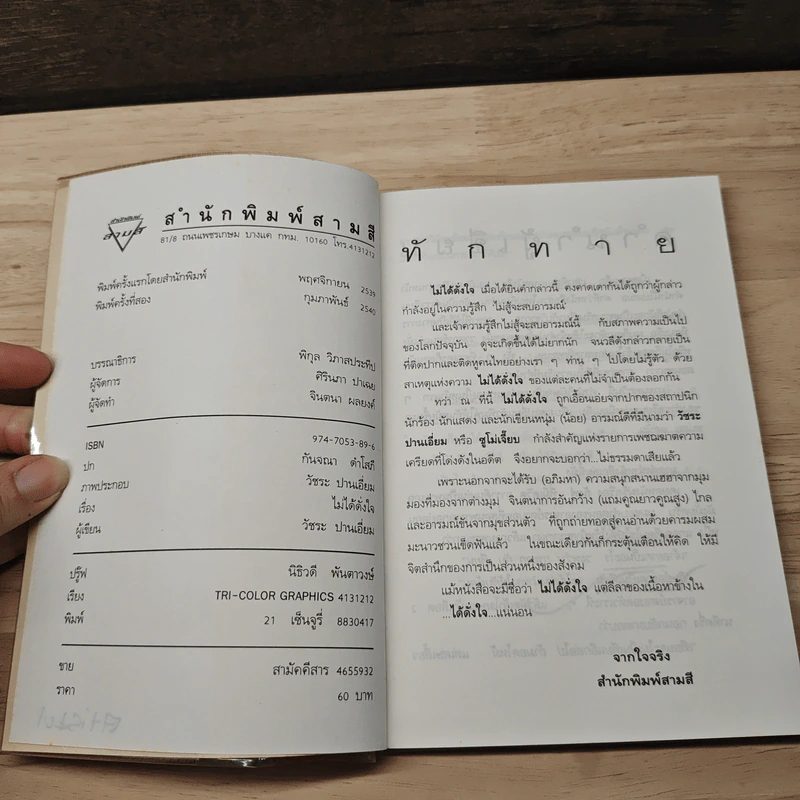 สำนักพิมพ์
สามสี
สำนักพิมพ์สามสี
81/8 ถนนเพชรเกษม บางแค กทม. 10160 โทร.4131212
พิมพ์ครั้งแรกโดยสำนักพิมพ์ พฤศจิกายน 2539
พิมพ์ครั้งที่สอง กุมภาพันธ์ 2540
บรรณาธิการ พิกุล วิภาสประทีป
ผู้จัดการ ศิรินภา ปาเฉย
ผู้จัดทำ จินตนา ผลยงค์
ISBN 974-7053-89-6
ปก กันจณา ดำโสภี
ภาพประกอบ วัชระ ปานเอี่ยม
เรื่อง ไม่ได้ดั่งใจ
ผู้เขียน วัชระ ปานเอี่ยม
ปรู๊ฟ นิธิวดี พันตาวงษ์
เรียง TRI-COLOR GRAPHICS 4131212
พิมพ์ 21 เซ็นจูรี่ 8830417
ขาย สามัคคีสาร 4655932
ราคา 60 บาท
ทักทาย
ไม่ได้ดั่งใจ เมื่อได้ยินคำกล่าวนี้ คงคาดเดากันได้ถูกว่าผู้กล่าว
กำลังอยู่ในความรู้สึก ไม่สู้จะสบอารมณ์
และเจ้าความรู้สึกไม่สู้จะสบอารมณ์นี้ กับสภาพความเป็นไป
ของโลกปัจจุบัน ดูจะเกิดขึ้นได้ไม่ยากนัก จนวลีดังกล่าวกลายเป็น
ที่ติดปากและติดหูคนไทยอย่างเรา ๆ ท่าน ๆ ไปโดยไม่รู้ตัว ด้วย
สาเหตุแห่งความ ไม่ได้ดั่งใจ ของแต่ละคนที่ไม่จำเป็นต้องลอกกัน
ทว่า ณ ที่นี้ ไม่ได้ดั่งใจ ถูกเอื้อนเอ่ยจากปากของสถาปนิก
นักร้อง นักแสดง และนักเขียนหนุ่ม (น้อย) อารมณ์ดีที่มีนามว่า วัชระ
ปานเอี่ยม หรือ ซูโม่เจี๊ยบ กำลังสำคัญแห่งรายการเพชฌฆาตความ
เครียดที่โด่งดังในอดีต จึงอยากจะบอกว่า...ไม่ธรรมดาเสียแล้ว
เพราะนอกจากจะได้รับ (อภิมหา) ความสนุกสนานเฮฮาจากมุม
มองที่มองจากต่างมุม จินตนาการอันกว้าง (แถมคูณยาวคูณสูง) ไกล
และอารมณ์ขันจากมุขส่วนตัว ที่ถูกถ่ายทอดสู่คนอ่านด้วยคารมผสม
มะนาวชวนเข็ดฟันแล้ว ในขณะเดียวกันก็กระตุ้นเตือนให้คิด ให้มี
จิตสำนึกของการเป็นส่วนหนึ่งของสังคม
แม้หนังสือจะมีชื่อว่า ไม่ได้ดั่งใจ แต่ลีลาของเนื้อหาข้างใน
...ได้ดั่งใจ...แน่นอน
จากใจจริง
สำนักพิมพ์สามสี